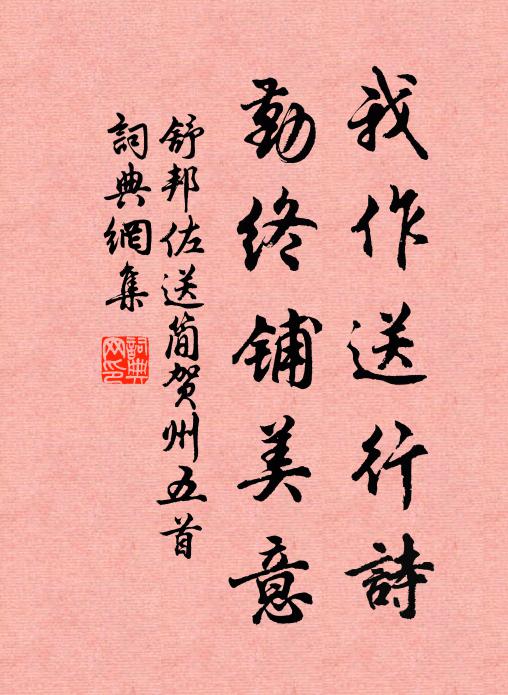 我作送行詩
勤終鋪美意
舒邦佐送簡賀州五首
詞典網集
詞典网印